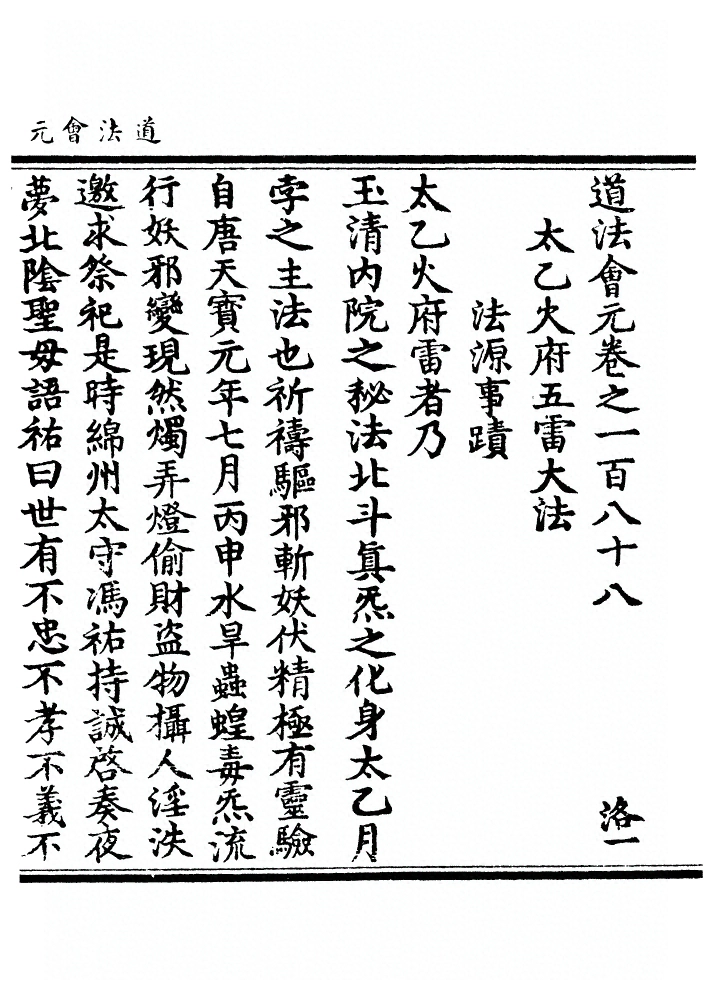 道法會元
道法會元卷之一百八十八 洛一
太乙火府五雷大法
法源事蹟
太乙火府雷者乃
玉清內院之秘法北斗真炁之化身太乙月
孛之主法也祈禱驅邪斬妖伏精極有靈驗
自唐天寶元年七月丙申水旱蟲蝗毒炁流
行妖邪變現然燭弄燈偷財盜物攝人淫泆
邀求祭祀是時綿州太守馮祐持誠啓奏夜
夢北陰聖母語祐曰世有不忠不孝不義不